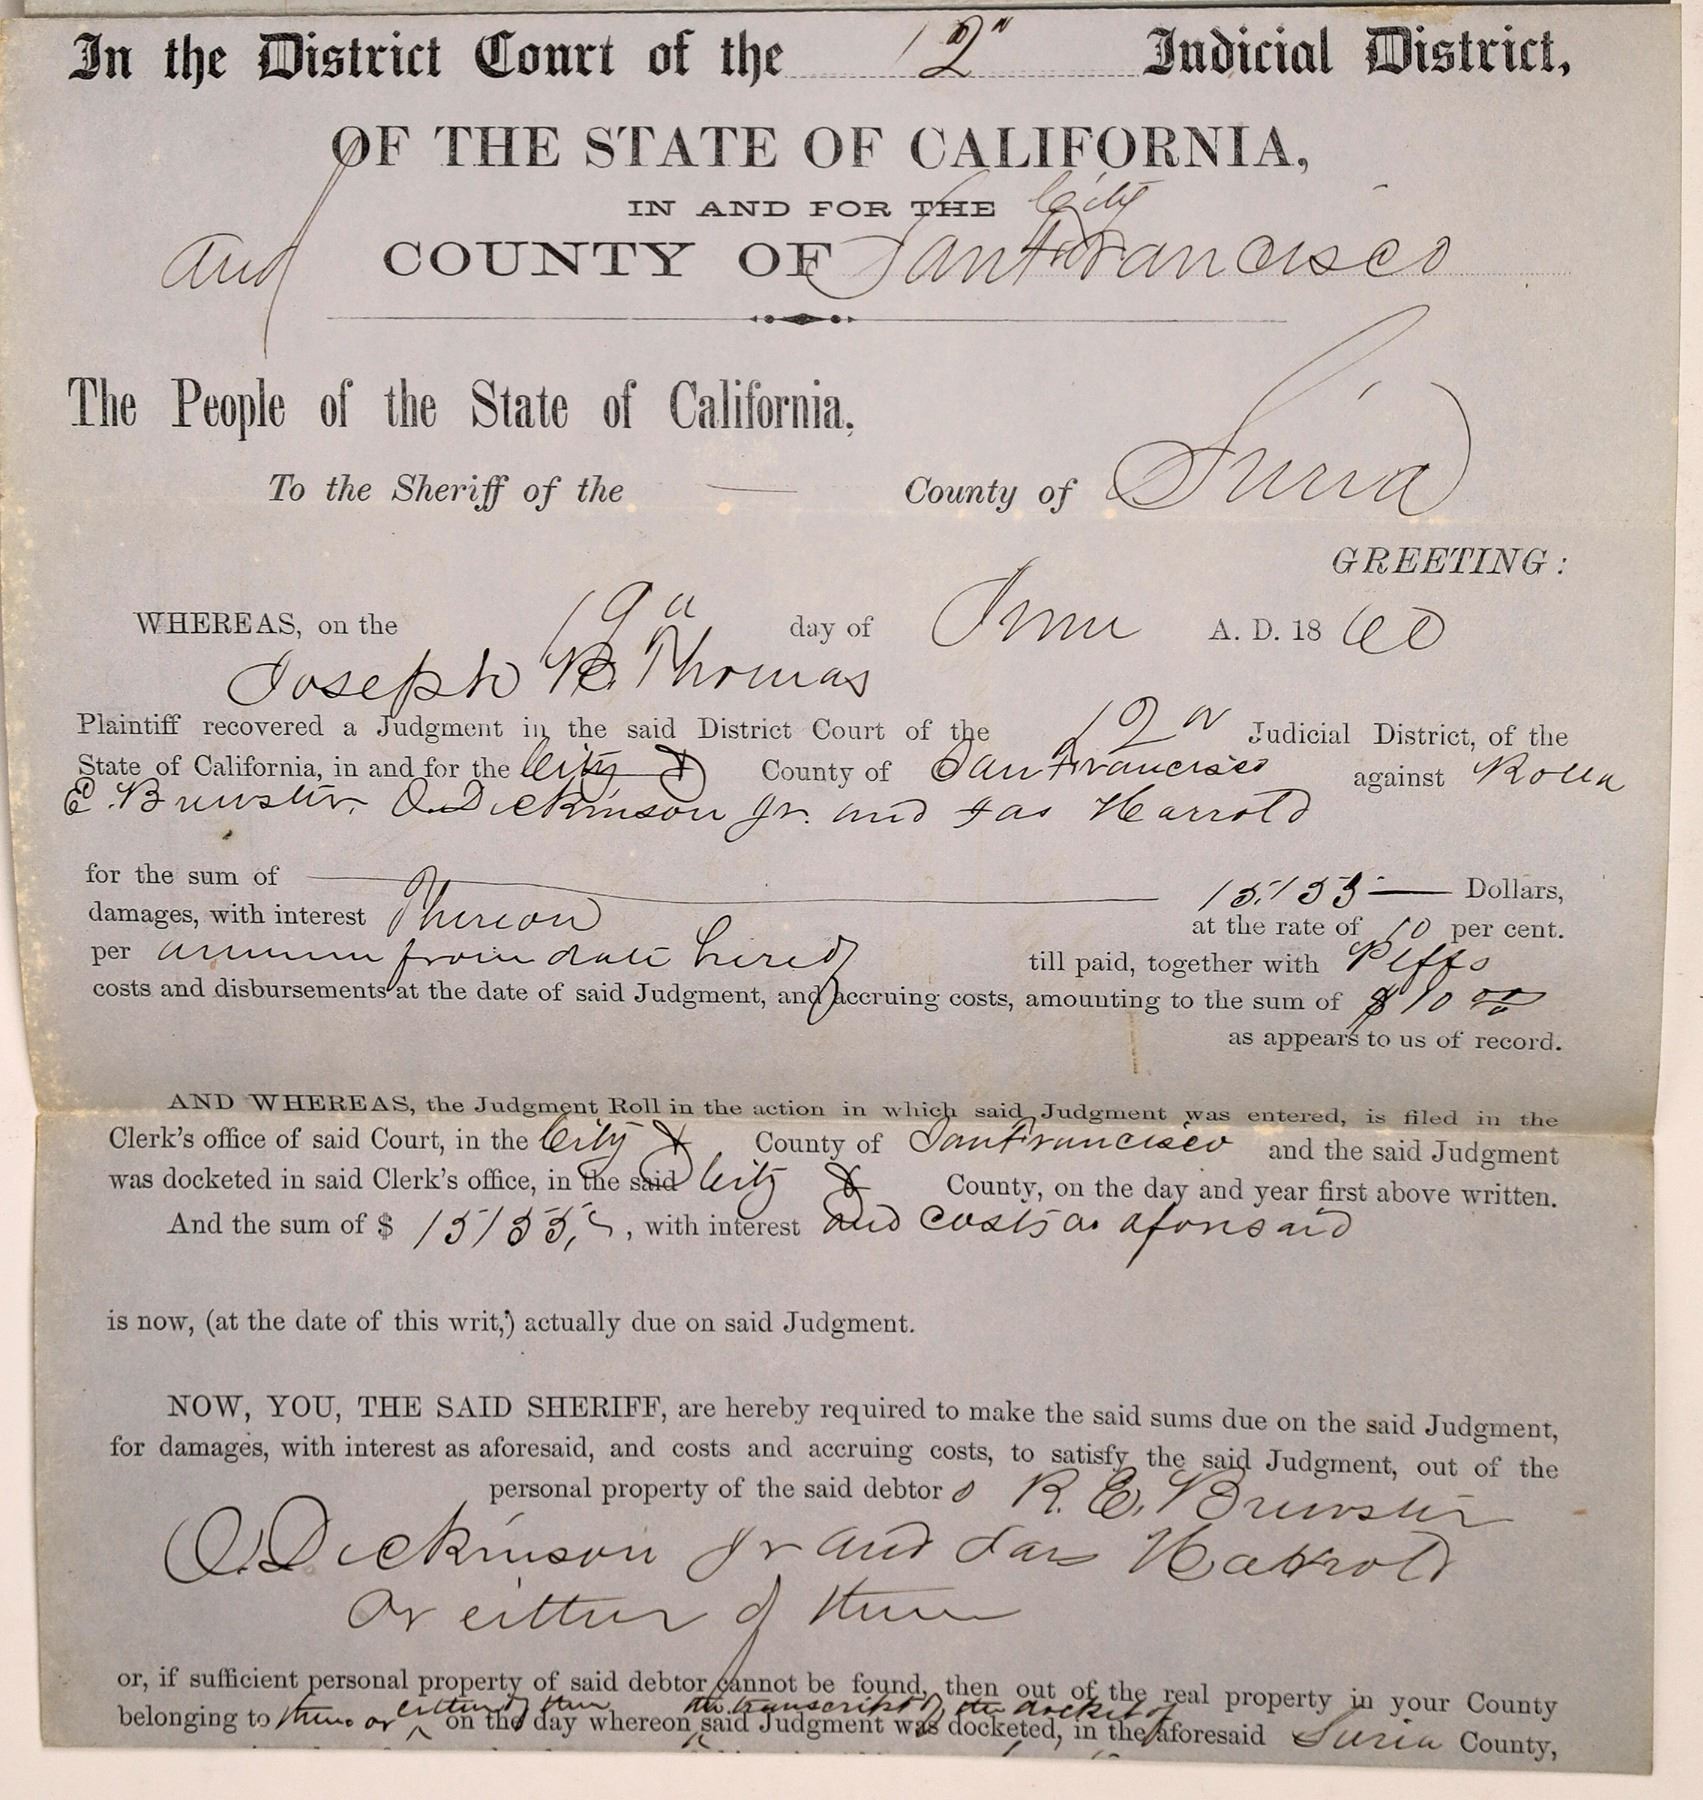 In the District Court of the 12" Judicial District,
OF THE STATE OF CALIFORNIA,
IN AND FOR THE City
and COUNTY OF San Francisco
The People of the State of California,
To the Sheriff of the — County of Sierra
GREETING:
WHEREAS, on the 19" day of June A. D. 1860
Joseph B. Thomas
Plaintiff recovered a Judgment in the said District Court of the 12" Judicial District, of the
State of California, in and for the City & County of San Francisco against Rolla
E. Brewster O. Dickinson Jr. and Jas Harrold
for the sum of 15,155 — Dollars,
damages, with interest Thereon at the rate of 10 per cent.
per annum from date hereof till paid, together with Plffs
costs and disbursements at the date of said Judgment, and accruing costs, amounting to the sum of $10 00
as appears to us of record.
AND WHEREAS, the Judgment Roll in the action in which said Judgment was entered, is filed in the
Clerk's office of said Court, in the City & County of San Francisco and the said Judgment
was docketed in said Clerk's office, in the said City & County, on the day and year first above written.
And the sum of $ 15155, with interest and costs as aforesaid
is now, (at the date of this writ,) actually due on said Judgment.
NOW, YOU, THE SAID SHERIFF, are hereby required to make the said sums due on the said Judgment,
for damages, with interest as aforesaid, and costs and accruing costs, to satisfy the said Judgment, out of the
personal property of the said debtor s R. E. Brewster
O. Dickinson Jr and Jas Harrold
or either of them
or, if sufficient personal property of said debtor cannot be found, then out of the real property in your County
either of them the transcript of the docket of
belonging to them or on the day whereon said Judgment was docketed, in the aforesaid Sierra County,